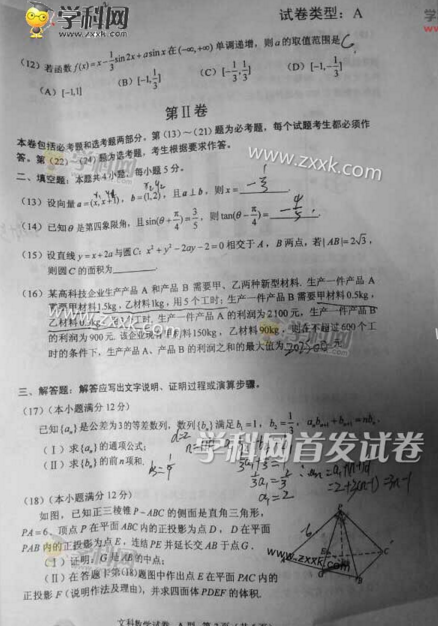 学科网
www.zxxk.com
试卷类型：A
(12) 若函数 f(x)=x-1/3 sin2x+asinx 在(-∞,+∞)单调递增，则a的取值范围是 C
(A) [-1,1] (B) [-1,1/3] (C) [-1/3,1/3] (D) [-1,-1/3]
第Ⅱ卷
本卷包括必考题和选考题两部分。第(13)～(21)题为必考题，每个试题考生都必须作
答。第(22)～(24)题为选考题，考生根据要求作答。
学科网
www.zxxk.com
二、填空题：本题共4小题，每小题5分。
(13) 设向量 a=(x,x+1)，b=(1,2)，且 a⊥b，则 x=
(14) 已知θ是第四象限角，且 sin(θ+π/4)=3/5，则 tan(θ-π/4)=
(15) 设直线 y=x+2a 与圆C: x²+y²-2ay-2=0 相交于A，B两点，若|AB|=2√3，
则圆C的面积为
(16) 某高科技企业生产产品A和产品B需要甲、乙两种新型材料。生产一件产品A
需要甲材料1.5kg，乙材料1kg，用5个工时；生产一件产品B需要甲材料0.5kg，
乙材料0.3kg，用3个工时，生产一件产品A的利润为2100元，生产一件产品B
的利润为900元。该企业现有甲材料150kg，乙材料90kg，则在不超过600个工
时的条件下，生产产品A、产品B的利润之和的最大值为
三、解答题：解答应写出文字说明、证明过程或演算步骤。
(17)（本小题满分12分）
已知{aₙ}是公差为3的等差数列，数列{bₙ}满足 b₁=1，b₂=1/3，aₙbₙ₊₁+bₙ₊₁=nbₙ.
(Ⅰ) 求{aₙ}的通项公式；
(Ⅱ) 求{bₙ}的前n项和.
学科网首发试卷
(18)（本小题满分12分）
如图，已知正三棱锥P-ABC的侧面是直角三角形，
PA=6，顶点P在平面ABC内的正投影为点D，D在平面
PAB内的正投影为点E，连结PE并延长交AB于点G.
(Ⅰ) 证明：G是AB的中点；
(Ⅱ) 在答题卡第(18)题图中作出点E在平面PAC内的
正投影F（说明作法及理由），并求四面体PDEF的体积.
www.zxxk.com